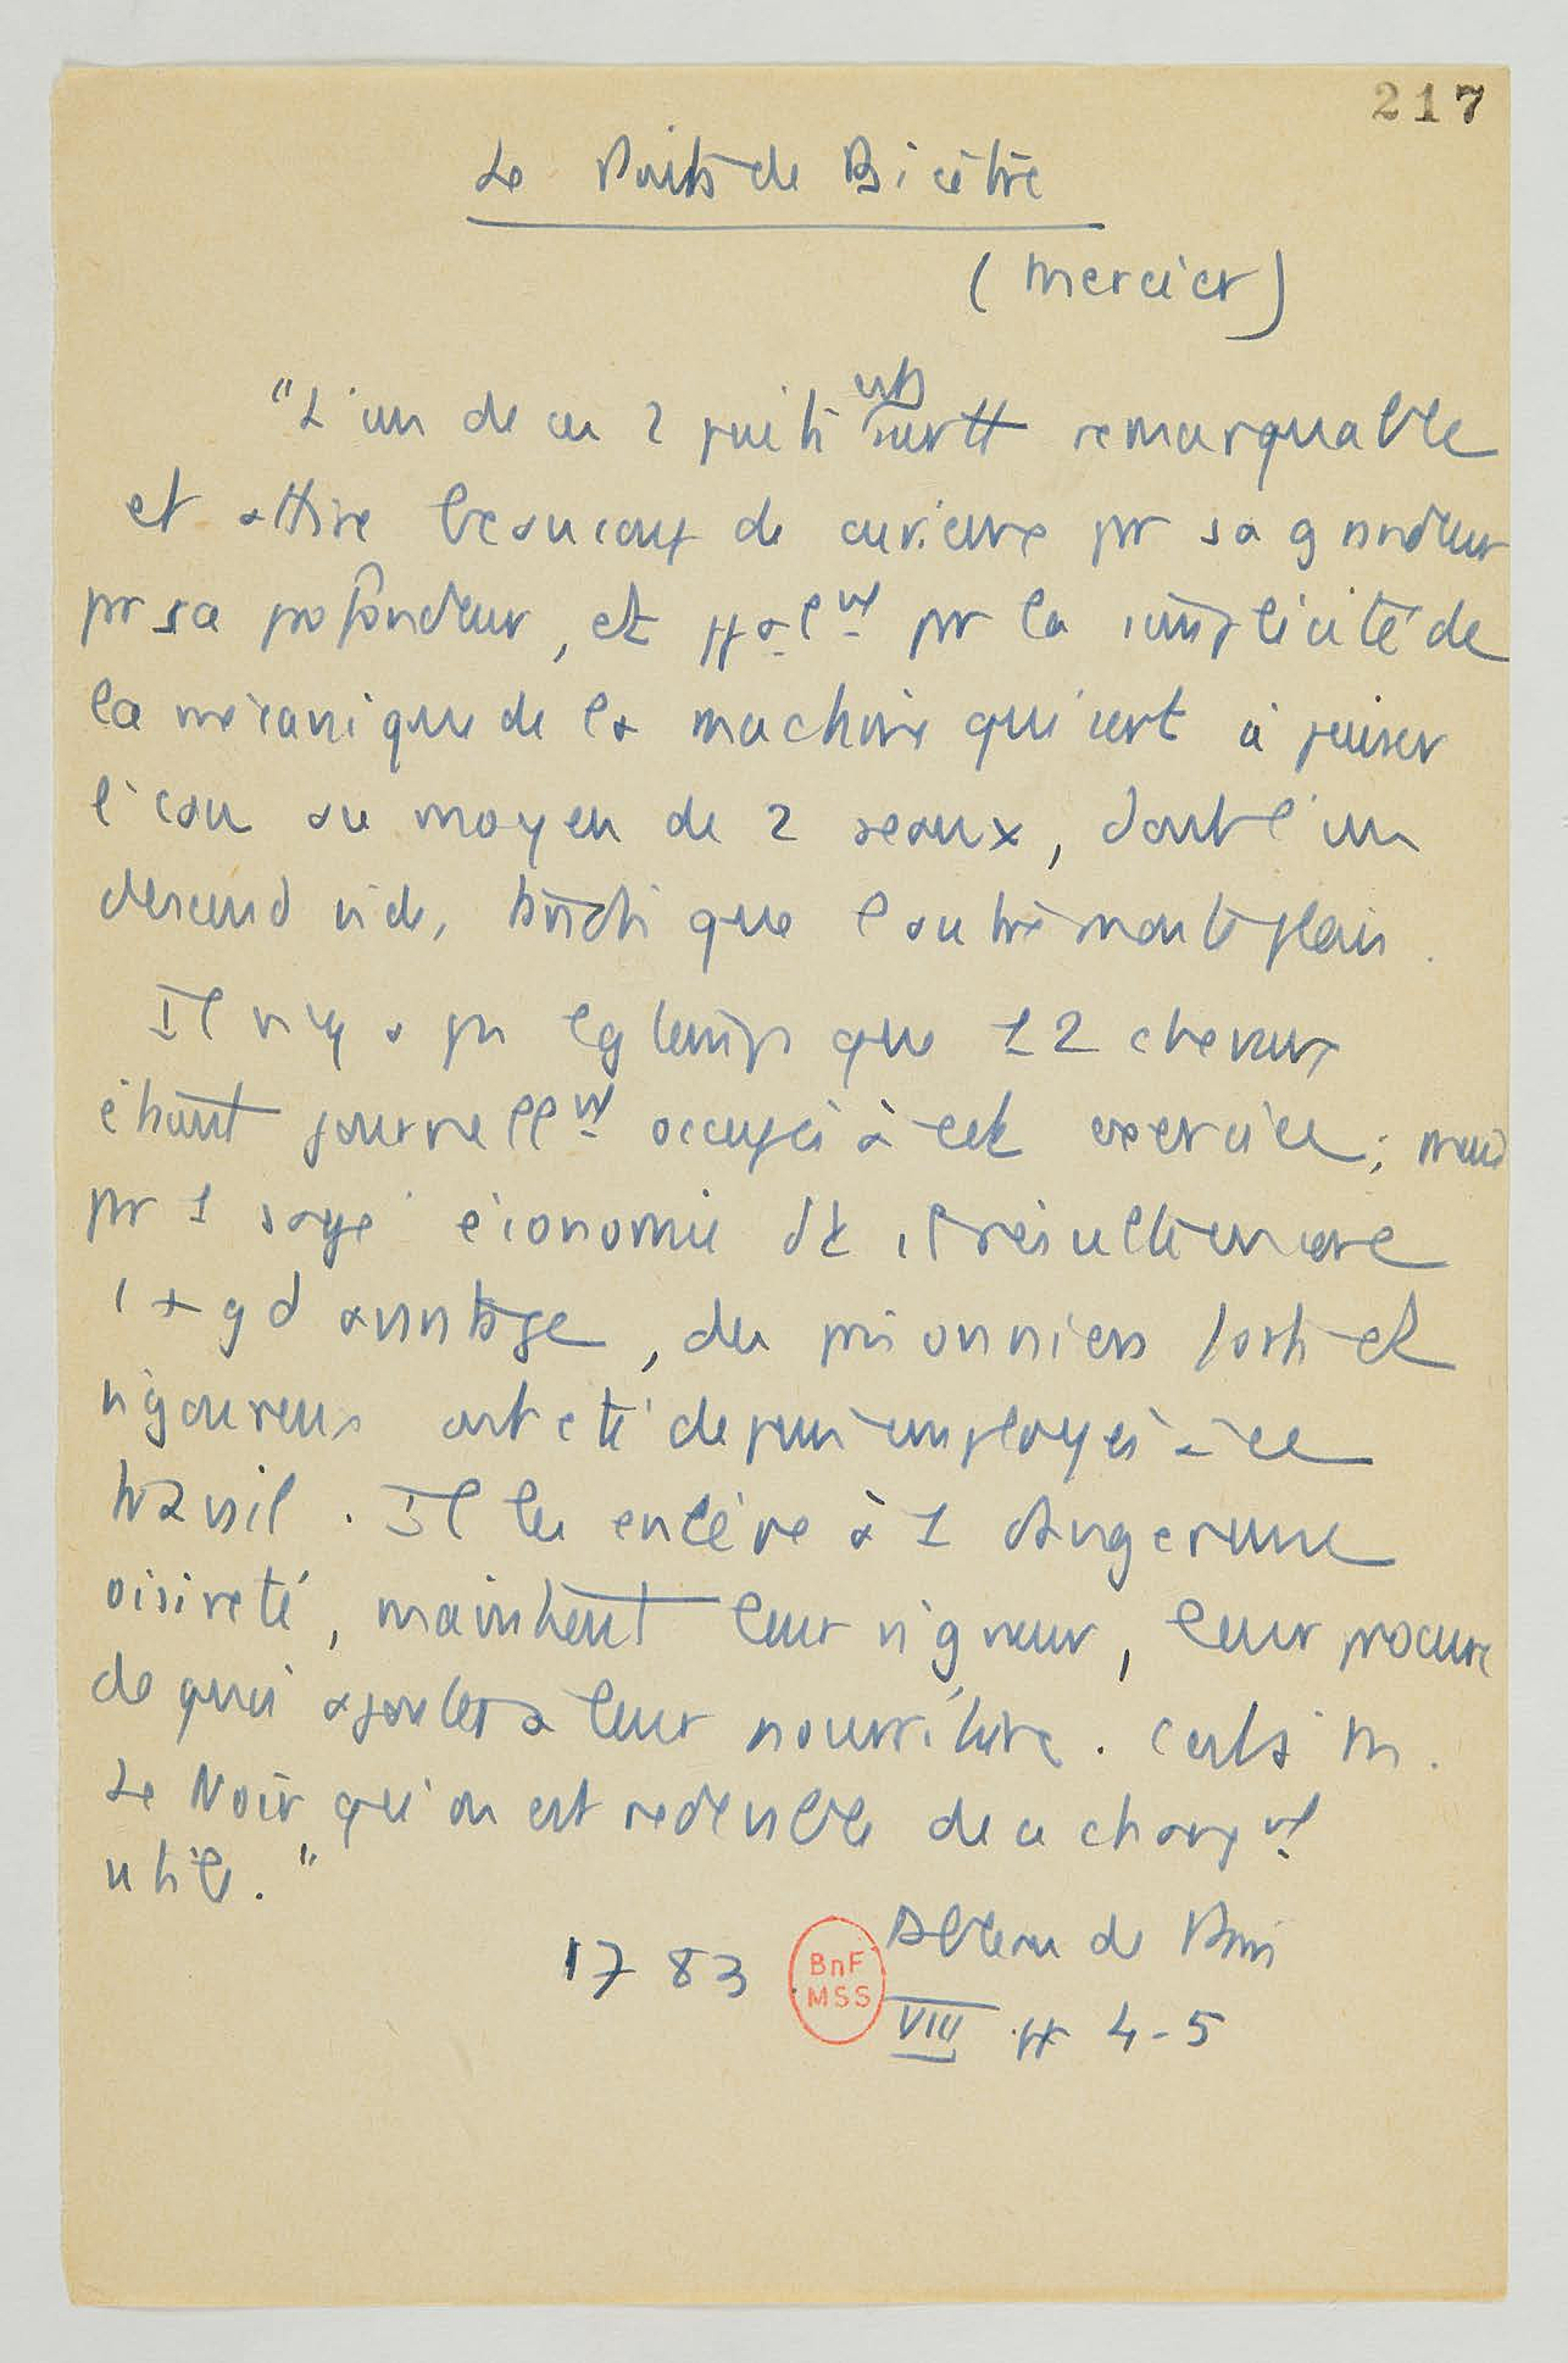 217
Le Puits de Bicêtre
(Mercier)
"L'un de ces 2 puits est surtt remarquable
et attire beaucoup de curieux pr sa grandeur
pr sa profondeur, et ppalnt pr la simplicité de
la mécanique de la machine qui sert à puiser
l'eau au moyen de 2 seaux, dont l'un
descend vide, tandis que l'autre monte plein.
Il n'y a pas lgtemps que 12 chevaux
étaient journellnt occupés à cet exercice ; mais
pr 1 sage économie dt il résulte encore
1 + gd avantage, des prisonniers forts et
vigoureux ont été depuis employés à ce
travail. Il les enlève à 1 dangereuse
oisiveté, maintient leur vigueur, leur procure
de quoi ajouter à leur nourriture. C'est à M.
Le Noir qu'on est redevable de ce changnt
utile."
1783 Tableau de Paris
BnF
MSS
VIII pp 4-5